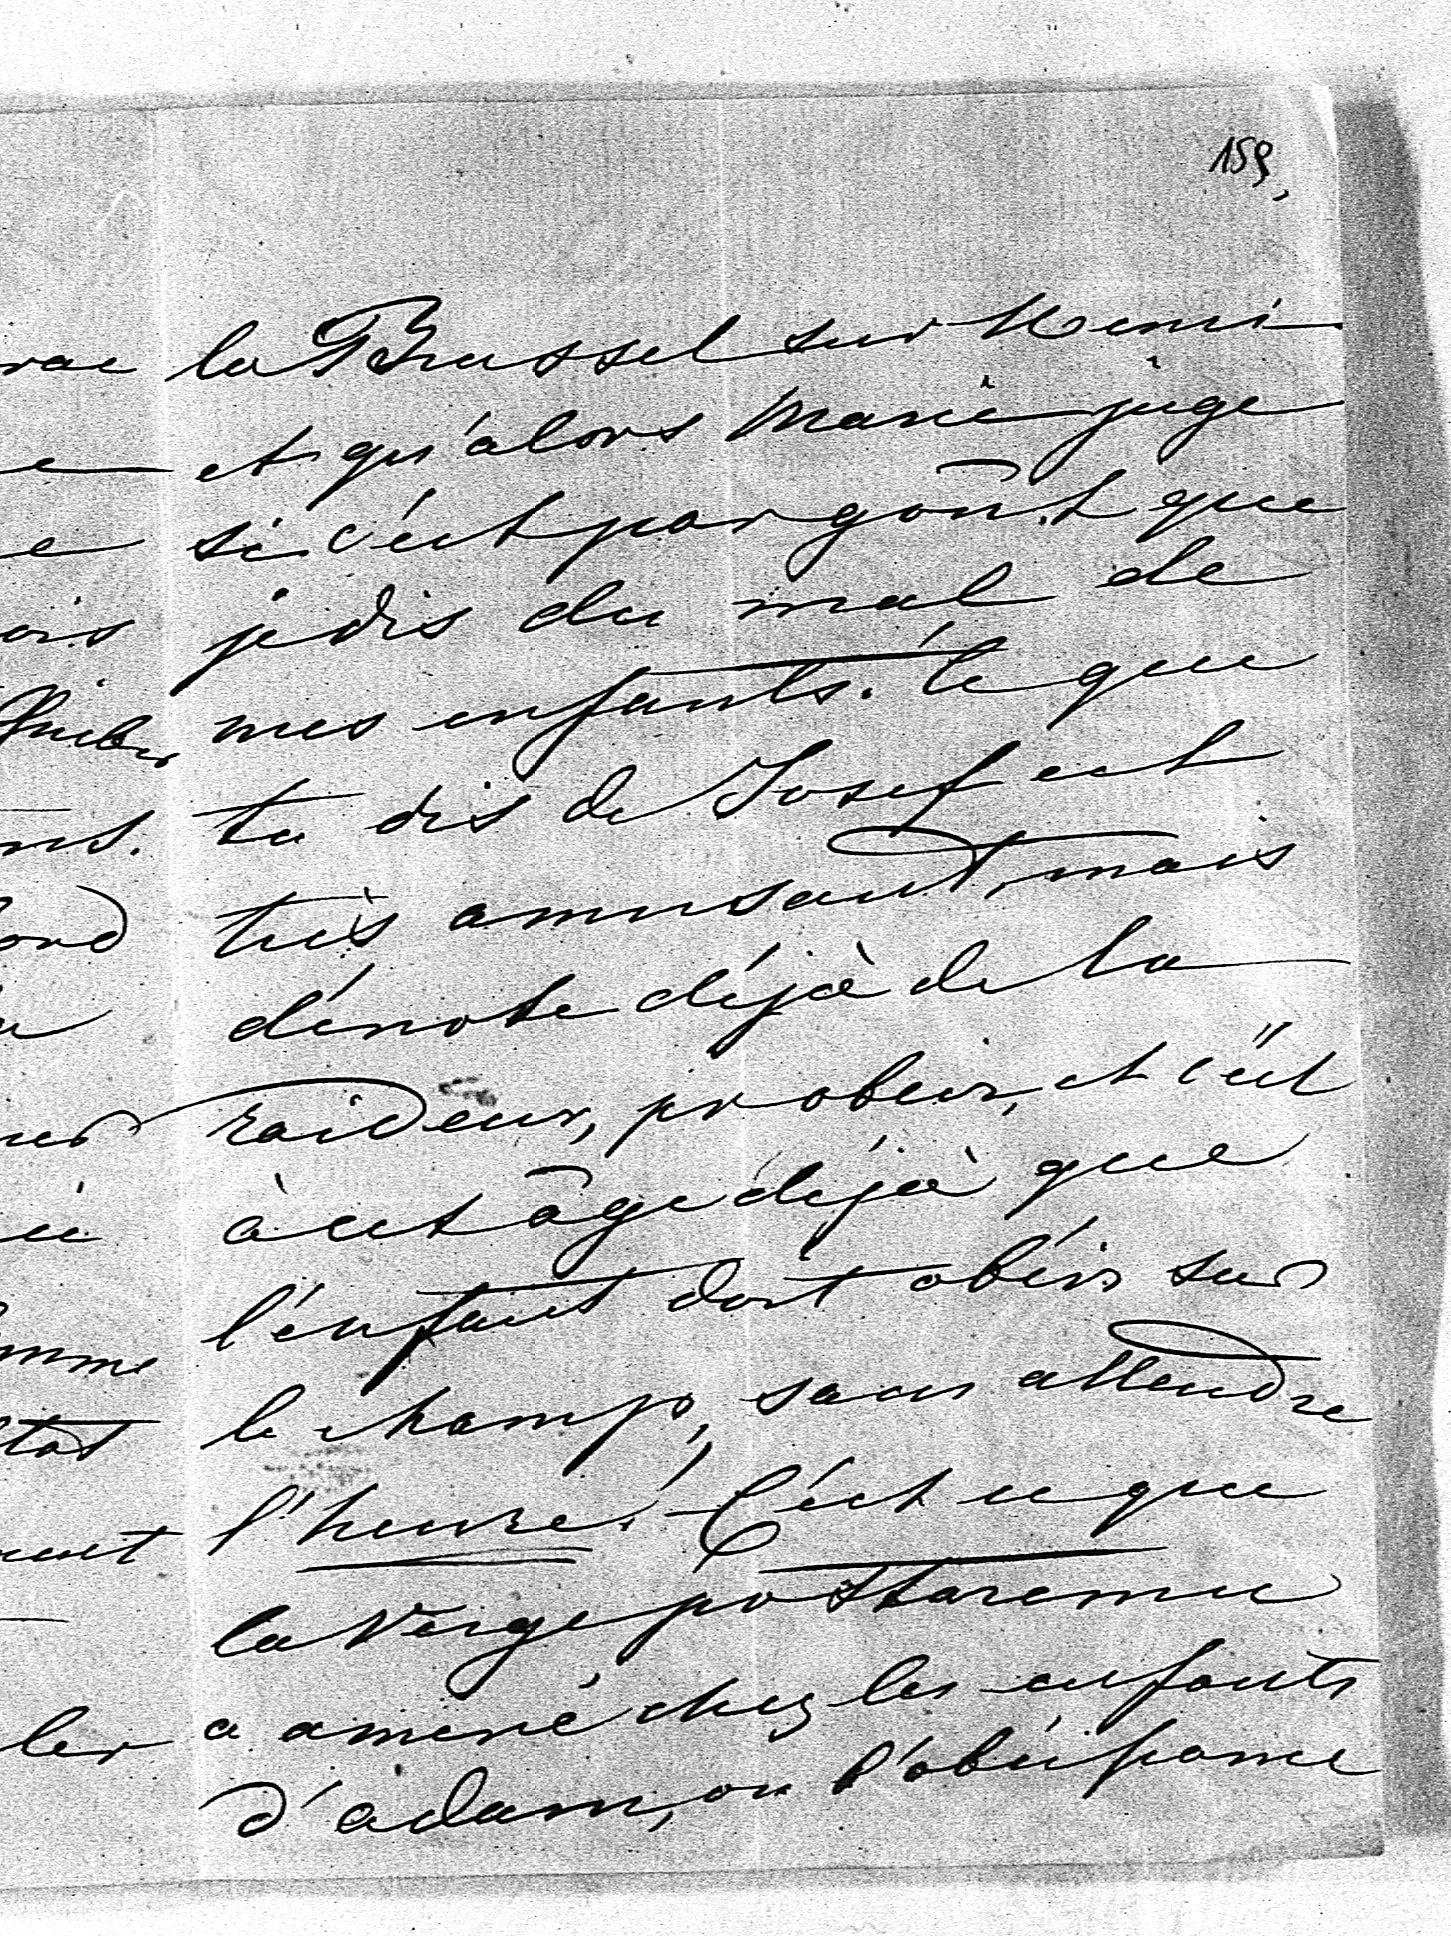 159,
la Brussel sur Henri
et qu'alors Marie juge
si c'est par goût que
je dis du mal de
mes enfants. Ce que
tu dis de Josef est
très amusant, mais
dénote déjà de la
raideur, et c'est
à cet âge déjà que
l'enfant doit obéir sur
le champ, sans attendre
l'heure. C'est ce que
la Verge
a amené chez les enfants
d'adam, ou l'obéissance
rac
e
e
ois
ns.
ord
u
ent
ler